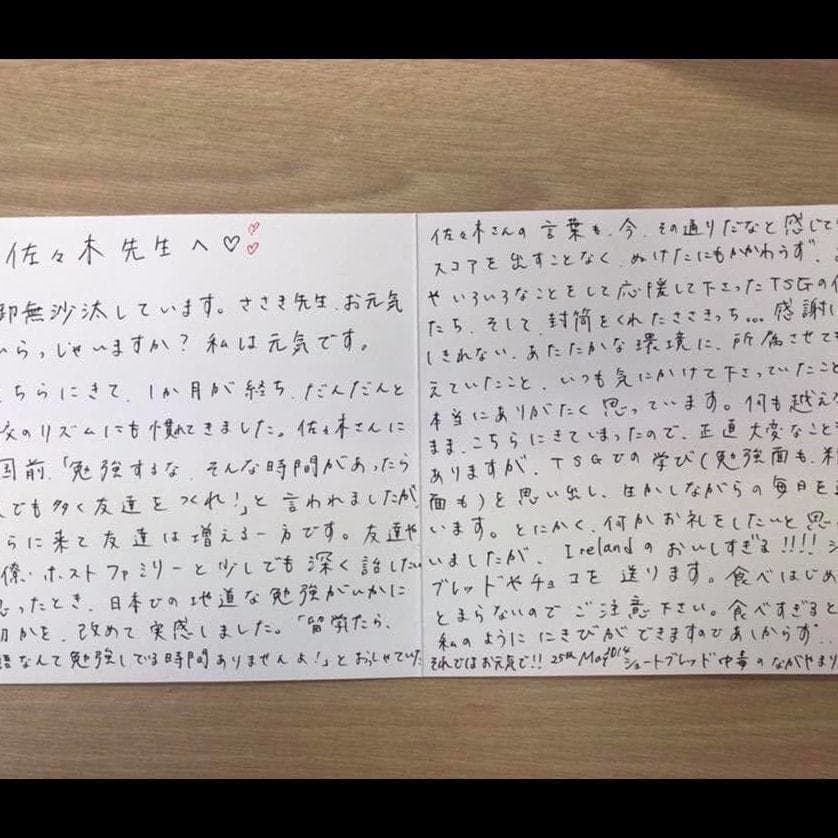 佐々木 先生へ♡♡♡
御無沙汰しています。ささき先生、お元気
いらっしゃいますか？ 私は元気です。
ちらにきて、1か月が経ち、だんだんと
校のリズムにも慣れてきました。佐々木さんに
国前、「勉強するな、そんな時間があったら
でも多く友達をつくれ！」と言われましたが、
らに来て友達は増える一方です。友達や
僚・ホストファミリーと少しでも深く話したい
思ったとき、日本での地道な勉強がいかに
切かを、改めて実感しました。「留学したら、
語なんて勉強している時間ありませんよ！」とおっしゃていた
佐々木さんの言葉も、今、その通りだなと感じて
スコアを出すことなく、ぬけたにもかかわらず、
やいろいろなことをして応援して下さったTSGの
たち、そして、封筒をくれたささきっち…感謝し
しきれない、あたたかな環境に、所属させても
えていたこと、いつも気にかけて下さっていたこと
本当にありがたく思っています。何も越えな
まま、こちらにきてしまったので、正直大変なことも
ありますが、TSGでの学び（勉強面も、精
面も）を思い出し、生かしながらの毎日を
います。とにかく、何かお礼をしたいと思
いましたが、Irelandのおいしすぎる！！！！シ
ブレッドやチョコを送ります。食べはじめ
とまらないのでご注意下さい。食べすぎると
私のようににきびができますのであしからず。
それではお元気で！！ 25th May 2014 ショートブレッド中毒のながやまり